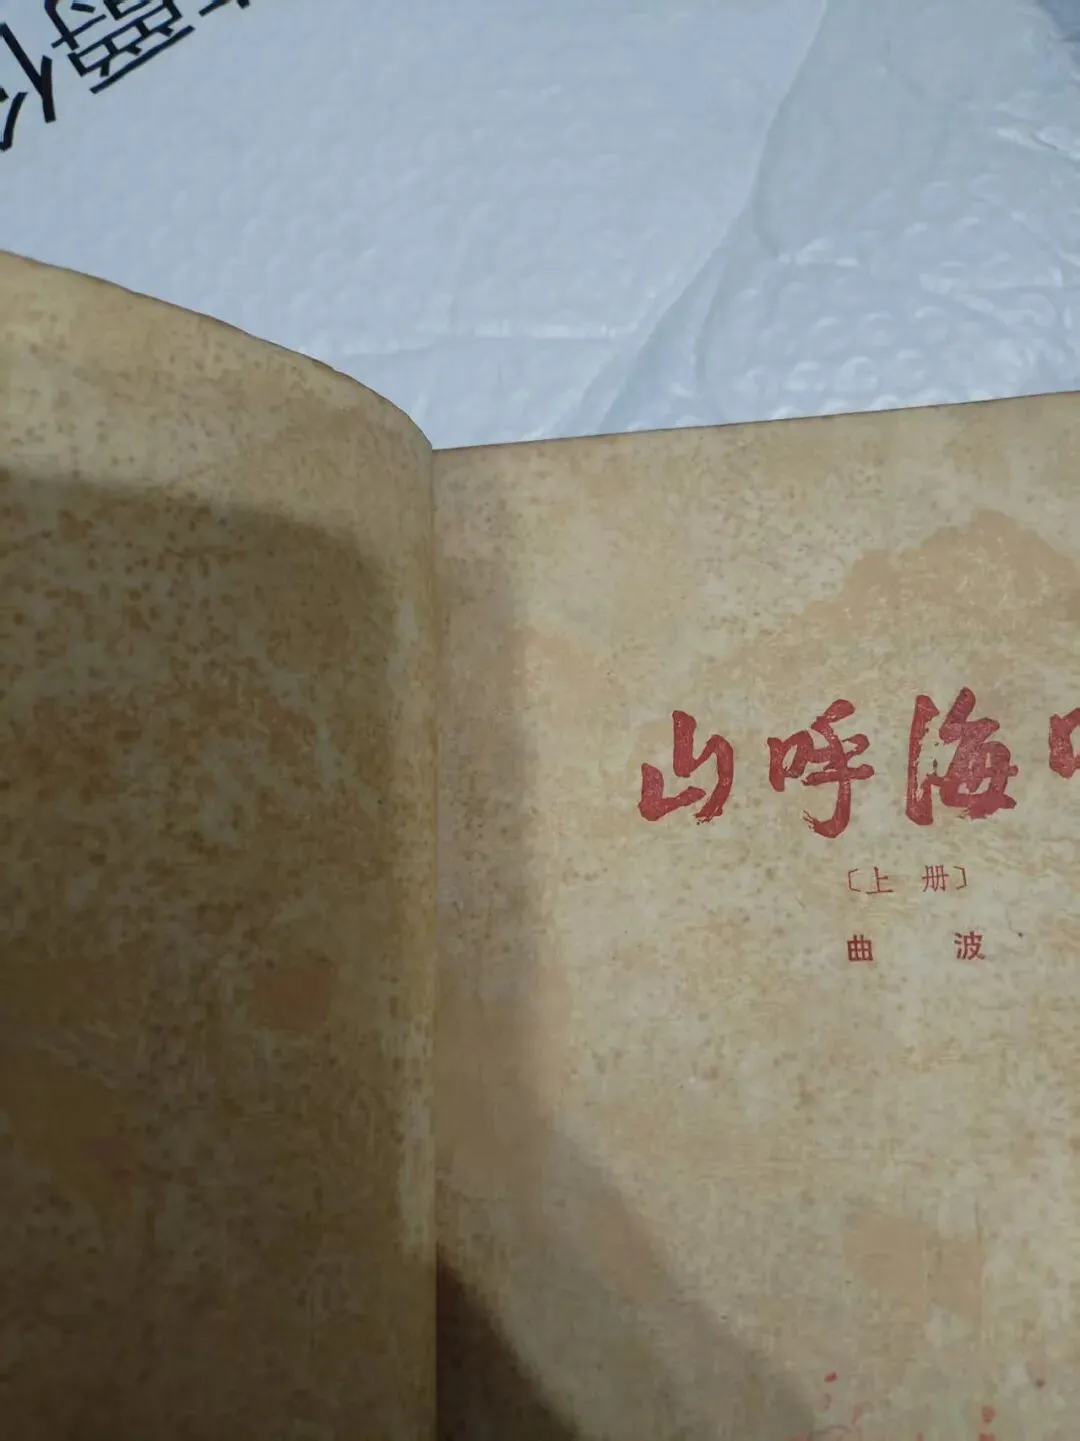 山呼海
〔上册〕
曲波